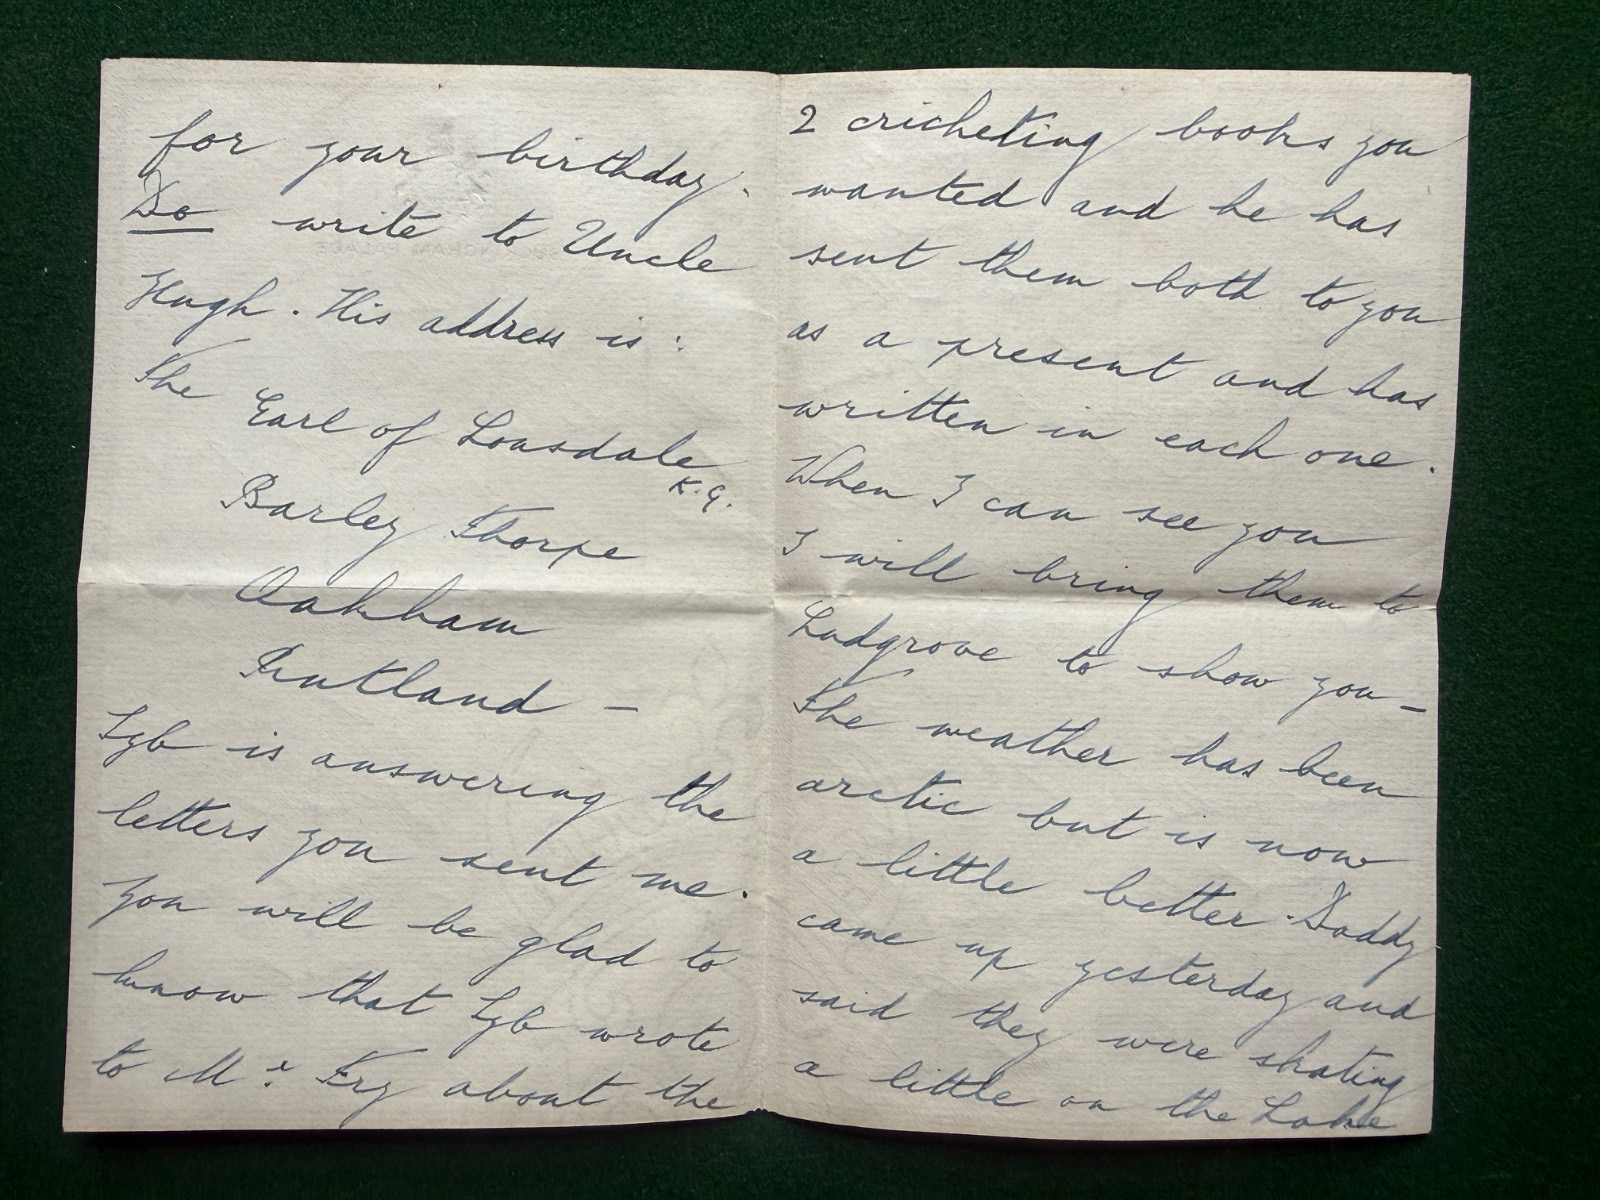 for your birthday.
Do write to Uncle
Hugh. His address is:
The
Earl of Lonsdale
K.G.
Barley Thorpe
Oakham
Rutland –
Lyb is answering the
letters you sent me.
You will be glad to
know that Lyb wrote
to Mr. Fry about the
2 cricketing books you
wanted and he has
sent them both to you
as a present and has
written in each one.
When I can see you
I will bring them to
Ludgrove to show you –
The weather has been
arctic but is now
a little better. Daddy
came up yesterday and
said they were skating
a little on the Lake